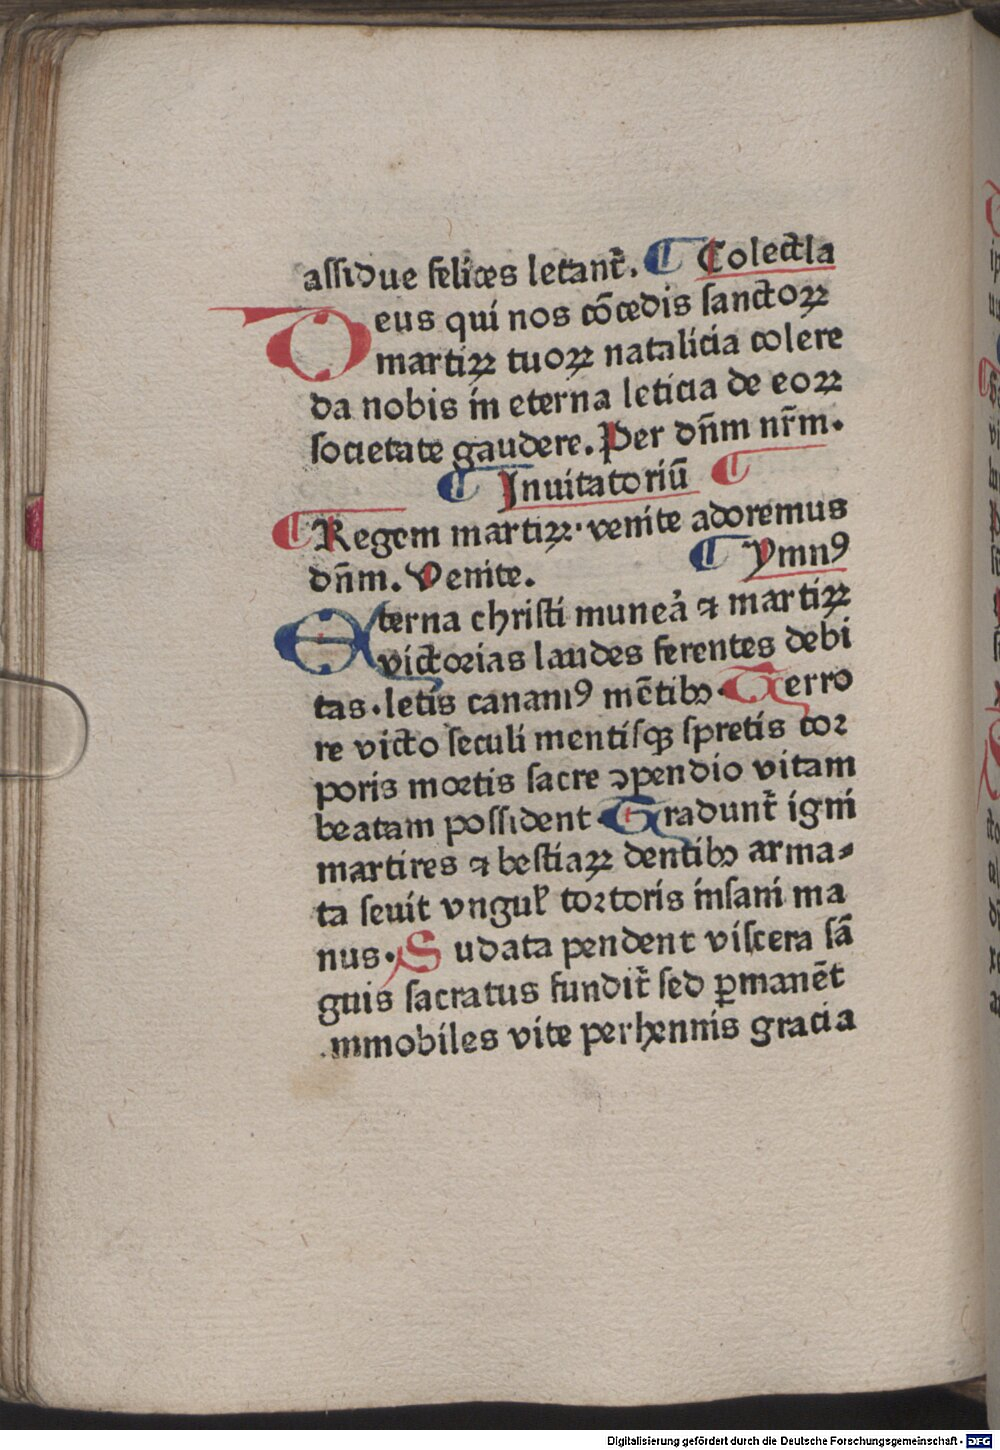 assidue felices letant᷑. Colectla
Deus qui nos cōcedis sanctoꝝ
martiꝝ tuoꝝ natalicia colere
da nobis in eterna leticia de eoꝝ
societate gaudere. Per dn̄m nr̄m.
Inuitatoriū
Regem martiꝝ· venite adoremus
dn̄m. Venite.
Ymnꝰ
Eterna christi munea᷑ ⁊ martiꝝ
victorias laudes ferentes debi
tas. letis canamꝰ mētibꝫ. Terro
re victo seculi mentisqꝫ spretis cor
poris mortis sacre ꝯpendio vitam
beatam possident. Tradunt᷑ igni
martires ⁊ bestiaꝝ dentibꝫ arma⸗
ta seuit vngul᷑ tortoris insani ma
nus. Nudata pendent viscera sā
guis sacratus fundit᷑ sed ꝑmanēt
immobiles vite perhennis gracia
Digitalisierung gefördert durch die Deutsche Forschungsgemeinschaft - DFG